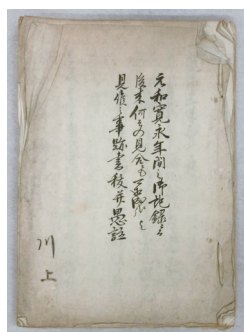 元和寛永年間之御記録ゟ
後来何その見合ニも可相成と
見候事跡書抜并愚註
川上